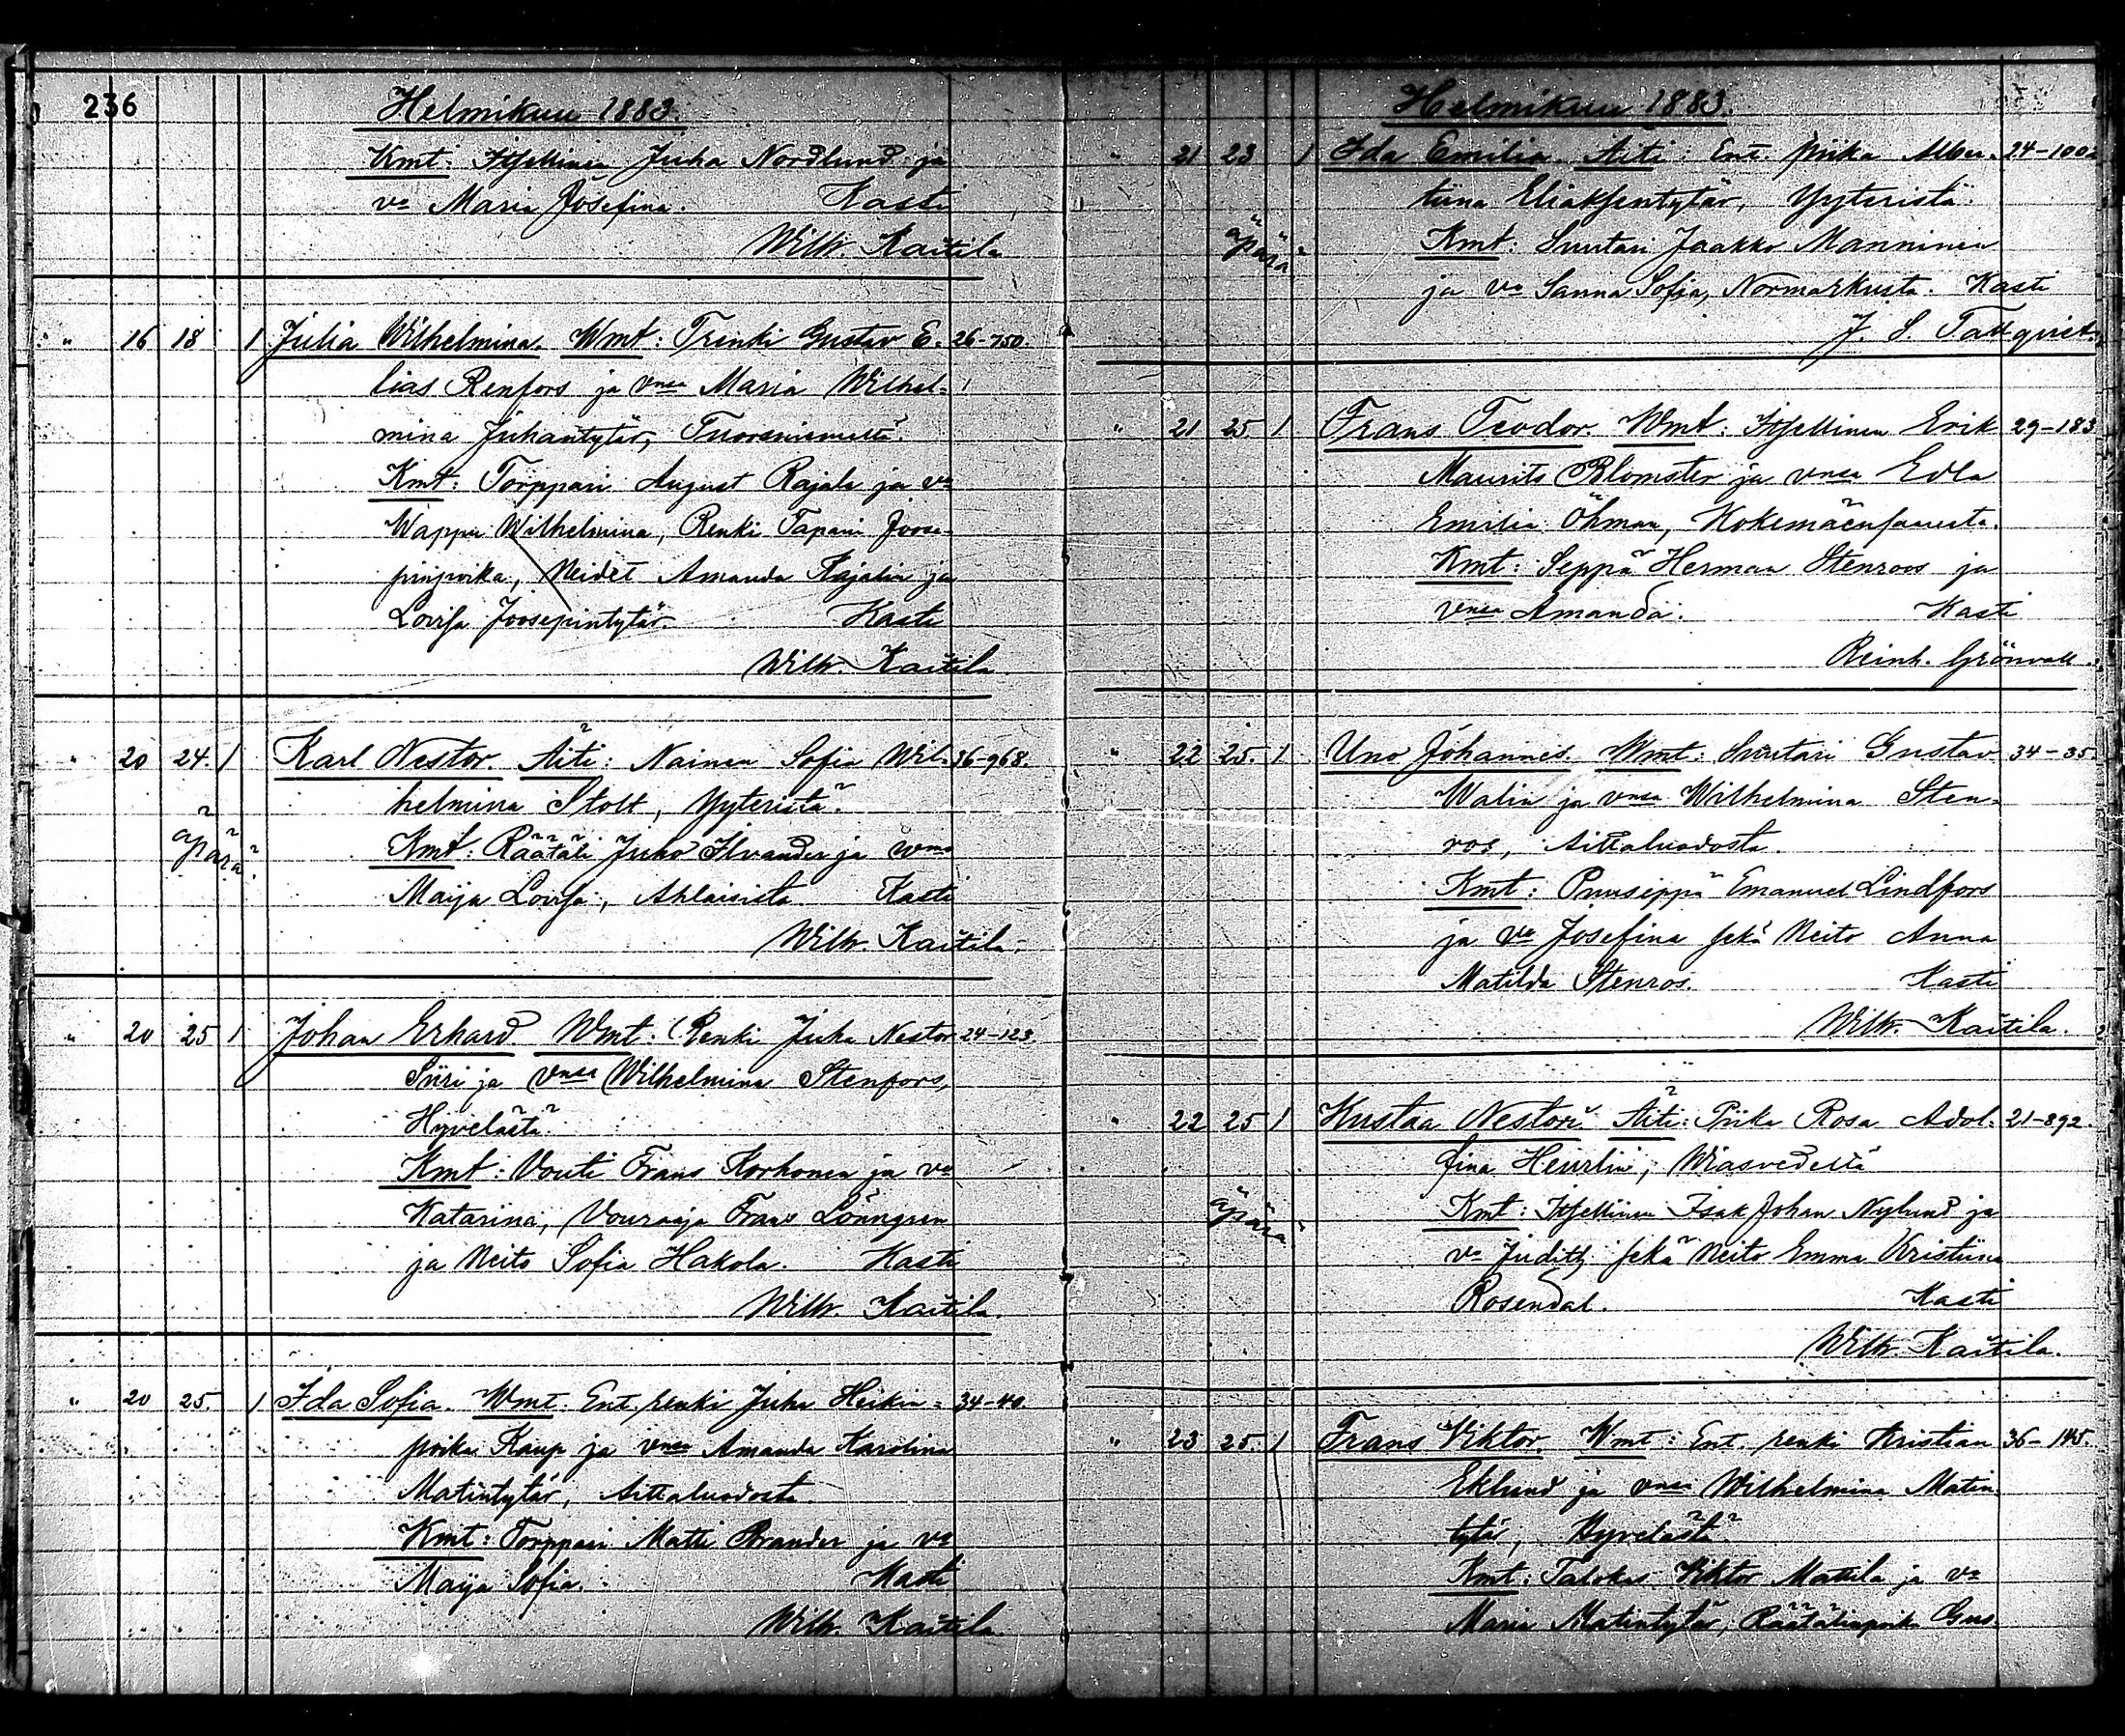 236
Helmikuu 1883.
Kmt: Itsellinen Juha Nordlund ja
va Maria Josefina. Kasti
Wilh. Kaitila
" 16 18 1 Julia Wilhelmina. Wmt: Trenki Gustav E- 26-750.
lias Renfors ja vnsa Maria Wilhel-
mina Juhantytär, Tuorsniemeltä.
Kmt: Torppari August Rajala ja va
Wappu Wilhelmina, Renki Tapani Joose-
pinpoika, Neidet Amanda Rajalin ja
Lovisa Joosepintytär. Kasti
Wilh. Kaitila
" 20 24. 1 Karl Nestor. Äiti: Nainen Sofia Wil- 36-968.
helmina Stolt, Yyteristä.
äpärä.
Kmt: Räätäli Juho Ilvander ja wmo
Maija Lovisa, Ahlaisista. Kasti
Wilh. Kaitila.
" 20 25 1 Johan Erhard Wmt: Renki Juha Nestor 24-123.
Siiri ja vnsa Wilhelmina Stenfors,
Hyvelästä.
Kmt: Vouti Frans Korhonen ja va
Katarina, Vouraaja Frans Lönngren
ja Neito Sofia Hakola. Kasti
Wilh. Kaitila.
" 20 25. 1 Ida Sofia. Wmt: Ent. renki Juha Heikin- 34-40.
poika Kaup ja vnsa Amanda Karolina
Matintytär, Aittaluodosta.
Kmt: Torppari Matti Brander ja va
Maija Sofia. Kasti
Wilh. Kaitila.
Helmikuu 1883.
" 21 23 1 Ida Emilia. Äiti: Ent. piika Alber- 24-1002
tiina Eliaksentytär, Yyteristä.
äpärä
Kmt: Suutari Jaakko Manninen
ja va Sanna Sofia, Normarkusta. Kasti
J. S. Tallqvist.
" 21 25. 1 Frans Teodor. Wmt: Itsellinen Erik 29-183
Maurits Blomster ja vnsa Edla
Emilia Öhman, Kokemäensaaresta.
Kmt: Seppä Herman Stenroos ja
vnsa Amanda. Kasti
Reinh. Grönvall.
" 22 25. 1 Uno Johannes. Wmt: Suutari Gustav 34-35.
Walin ja vnsa Wilhelmina Sten-
ros, Aittaluodosta.
Kmt: Puuseppä Emanuel Lindfors
ja va Josefina sekä Neito Anna
Matilda Stenros. Kasti
Wilh. Kaitila.
" 22 25 1 Kustaa Nestori Äiti: Piika Rosa Adol- 21-892.
fina Heurlin, Wiasvedeltä
äpärä
Kmt: Itsellinen Isak Johan Nylund ja
va Judith sekä Neito Emma Kristiina
Rosendal. Kasti
Wilh. Kaitila.
" 23 25. 1 Frans Viktor. Wmt: Ent. renki Kristian 36-145.
Eklund ja vnsa Wilhelmina Matin-
tytär, Hyvelästä.
Kmt: Talokas Viktor Mattila ja va
Maria Matintytär, Räätälinpoika Gus-